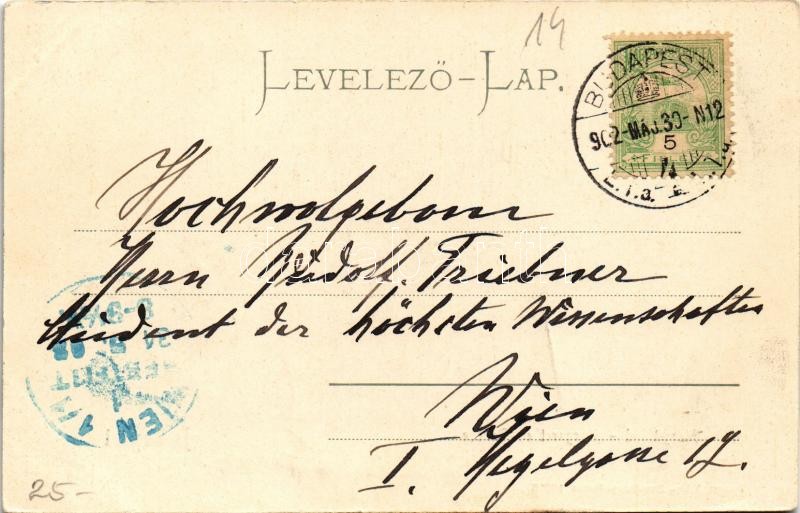 14
LEVELEZŐ-LAP.
BUDAPEST
902-MÁJ.30-N12
5
Hochwolgeborn
Herrn Rudolf Triebner
Student der höchsten Wissenschaften
Wien
I. Hegelgasse 17.
WIEN 1/1
25-